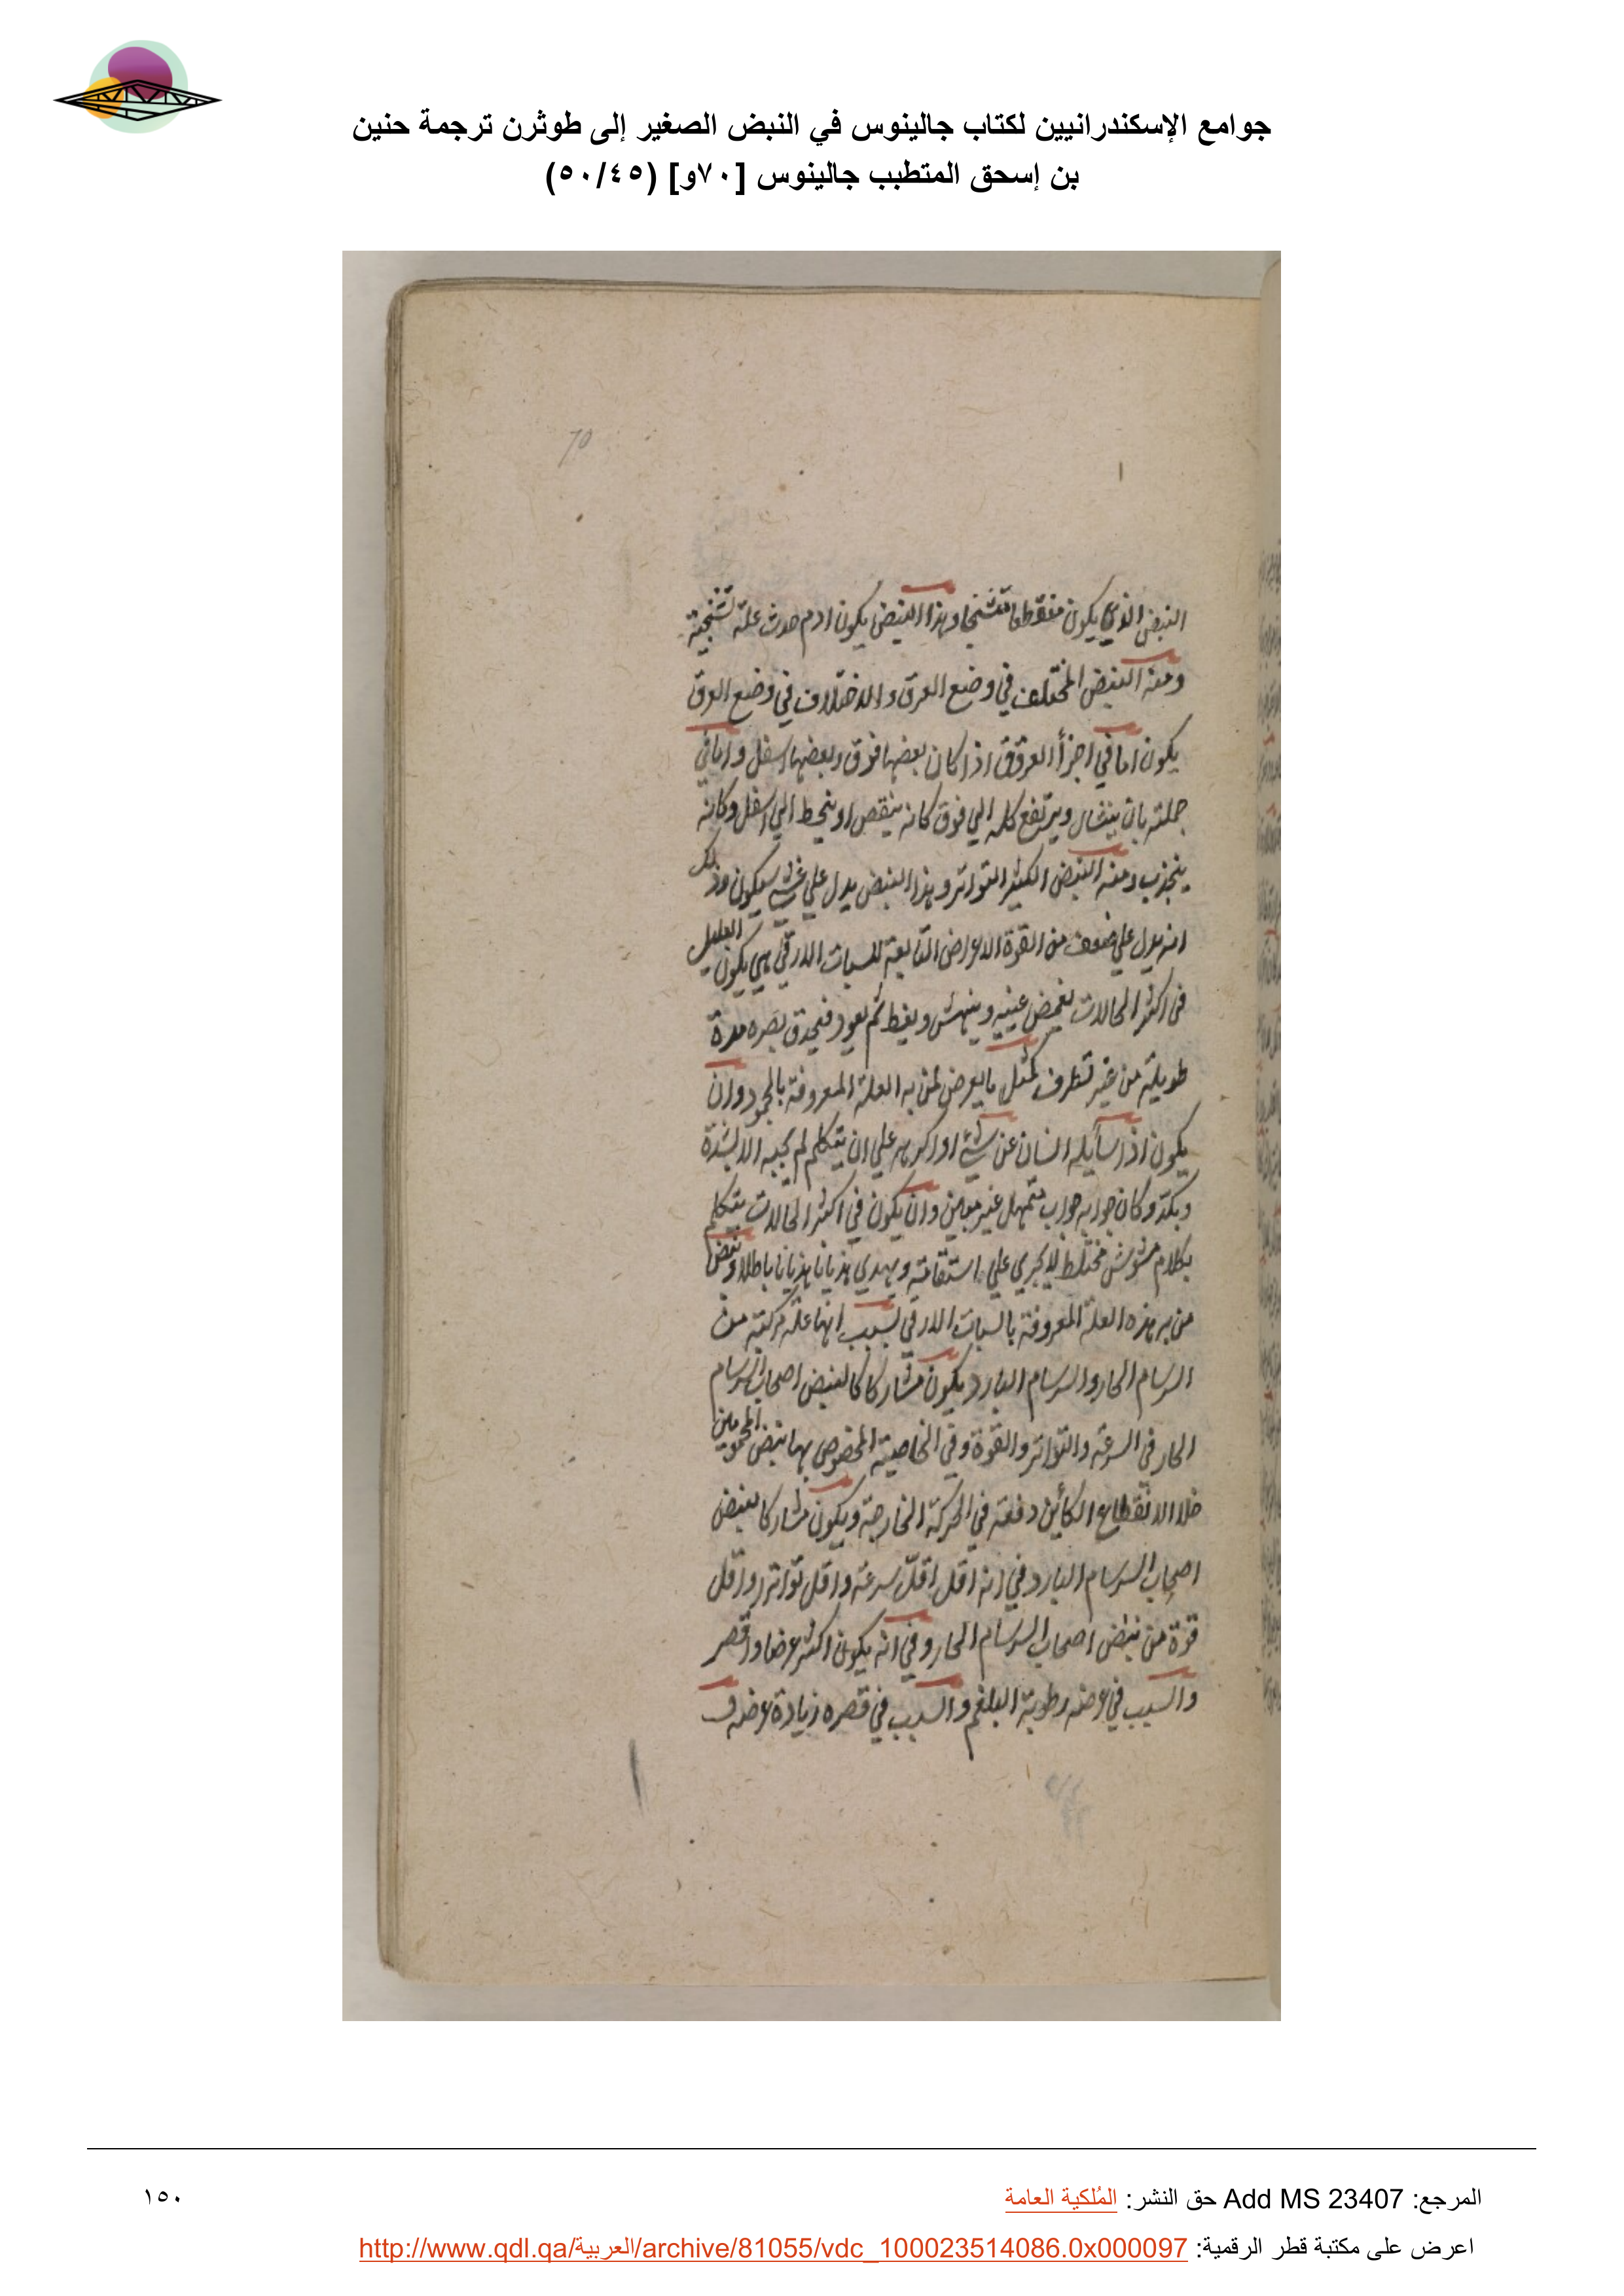 جوامع الإسكندرانيين لكتاب جالينوس في النبض الصغير إلى طوثرن ترجمة حنين
بن إسحق المتطبب جالينوس [٧٠و] (٥٠/٤٥)
70
النبض الذي يكون منقطعا متشنجا وهذا النبض يكون ادم حدث علة تشنجية
ومنه النبض المختلف في وضع العرق والاختلاف في وضع العرق
يكون اما في اجزأ العروق اذا كان بعضها فوق وبعضها اسفل واما في
جملته بان ينشال ويرتفع كله الي فوق كانه ينقص او ينحط الي اسفل وكانه
ينجذب ومنه النبض الكثير التواتر وهذا النبض يدل علي غشي سيكون وذلك
انه يدل علي ضعف من القوة الاعراض التابعة للسبات الارقي هي يكون العليل
في اكثر الحالات يغمض عينيه وينهش ويغط ثم يعود فيحدق بصره مدة
طويلة من غير تطرف كمثل ما يعرض لمن به العلة المعروفة بالجمود وان
يكون اذا سأيله انسان عن شيء او اكرهه علي ان يتكلم لم يجبه الا بشدة
وبكد وكان جوابه جواب متمهل غير معين وان يكون في اكثر الحالات يتكلم
بكلام مشوش مختلط لا يجري علي استقامة ويهدي هذيانا هذيانا باطلا ونبض
من به هذه العلة المعروفة بالسبات الارقي لسبب انها علة مركبة من
السرسام الحار والسرسام البارد يكون مشاركا كالنبض اصحاب السرسام
الحار في السرعة والتواتر والقوة وفي الخاصية المخصوص بها نبض المحمومين
خلا الانقطاع الكأين دفعة في الحركة الخارجة ويكون مشاركا لنبض
اصحاب السرسام البارد في انه اقل اقل سرعة واقل تواتر واقل
قوة من نبض اصحاب السرسام الحار وفي انه يكون اكثر عرضا واقصر
والسبب في عرضه رطوبة البلغم والسبب في قصره زيادة عرضه و
المرجع: Add MS 23407 حق النشر: المُلكية العامة
١٥٠
اعرض على مكتبة قطر الرقمية: http://www.qdl.qa/العربية/archive/81055/vdc_100023514086.0x000097